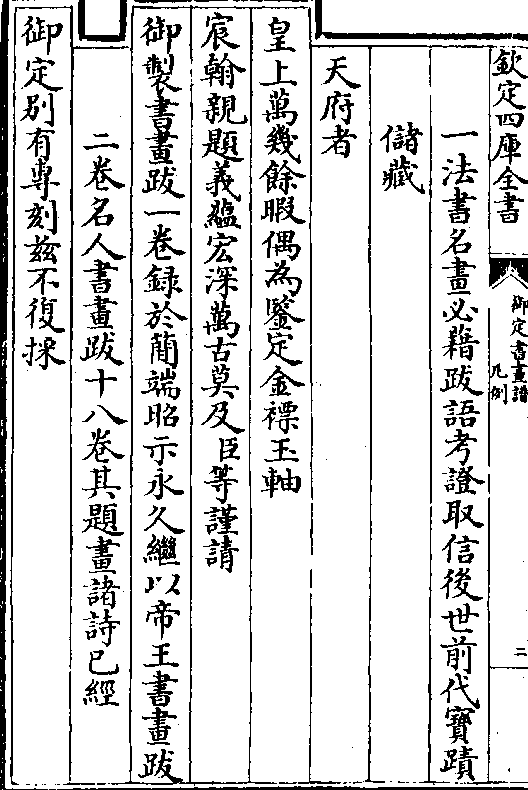 欽定四庫全書
御定書畫譜
凡例
二
一法書名畫必藉跋語考證取信後世前代寶蹟
儲藏
天府者
皇上萬幾餘暇偶為鑒定金褾玉軸
宸翰親題義蘊宏深萬古莫及臣等謹請
御製書畫跋一卷録於簡端昭示永久繼以帝王書畫跋
二卷名人書畫跋十八卷其題畫諸詩已經
御定别有專刻兹不復採